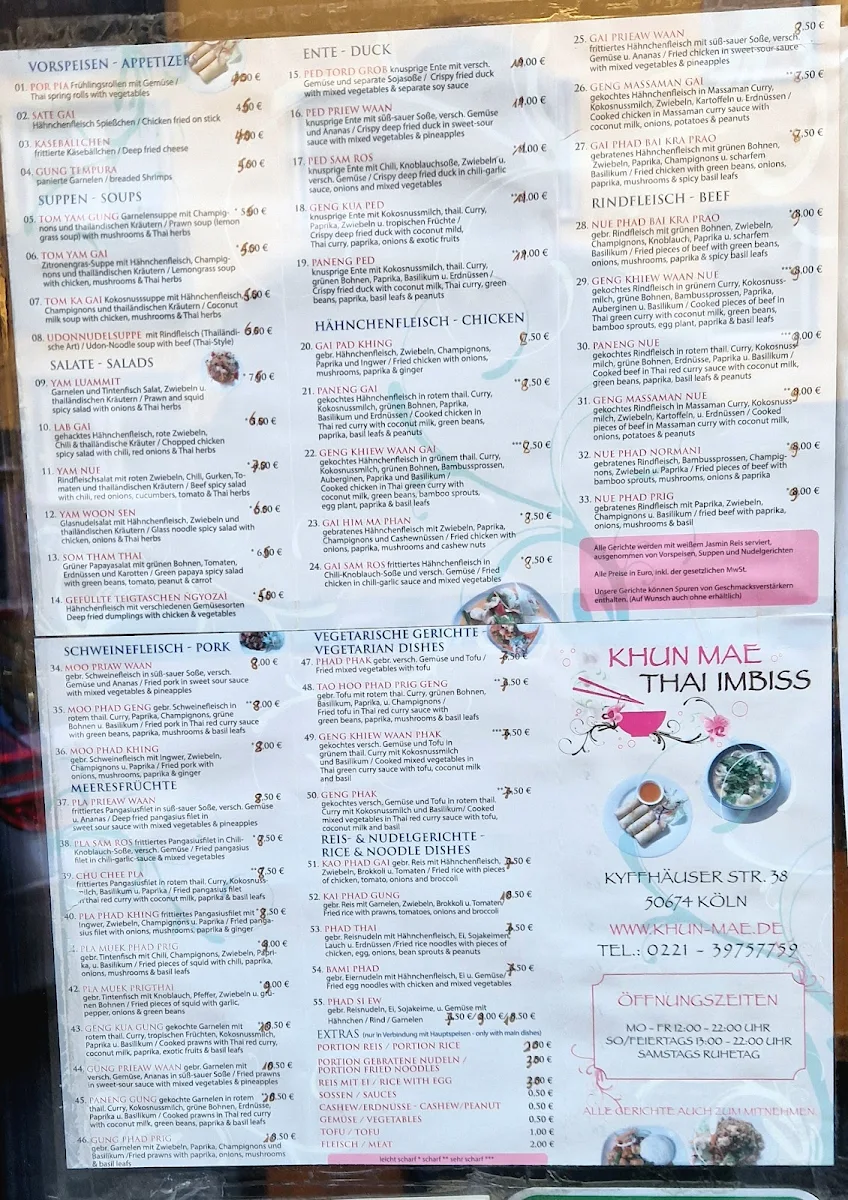 VORSPEISEN - APPETIZER
01. POR PIA Frühlingsrollen mit Gemüse /
Thai spring rolls with vegetables
02. SATE GAI 4,50 €
Hähnchenfleisch Spießchen / Chicken fried on stick
03. KÄSEBÄLLCHEN
frittierte Käsebällchen / Deep fried cheese
04. GUNG TEMPURA
panierte Garnelen / breaded Shrimps
SUPPEN - SOUPS
05. TOM YAM GUNG Garnelensuppe mit Champig-
nons und thailändischen Kräutern / Prawn soup (lemon
grass soup) with mushrooms & Thai herbs
06. TOM YAM GAI
Zitronengras-Suppe mit Hähnchenfleisch, Champig-
nons und thailändischen Kräutern / Lemongrass soup
with chicken, mushrooms & Thai herbs
07. TOM KA GAI Kokosnusssuppe mit Hähnchenfleisch,
Champignons und thailändischen Kräutern / Coconut
milk soup with chicken, mushrooms & Thai herbs
08. UDONNUDELSUPPE mit Rindfleisch (Thailändi-
sche Art) / Udon-Noodle soup with beef (Thai-Style)
SALATE - SALADS
09. YAM LUAMMIT
Garnelen und Tintenfisch Salat, Zwiebeln u.
thailändischen Kräutern / Prawn and squid
spicy salad with onions & Thai herbs
10. LAB GAI
gehacktes Hähnchenfleisch, rote Zwiebeln,
Chili & thailändische Kräuter / Chopped chicken
spicy salad with chili, red onions & Thai herbs
11. YAM NUE
Rindfleischsalat mit roten Zwiebeln, Chili, Gurken, To-
maten und thailändischen Kräutern / Beef spicy salad
with chili, red onions, cucumbers, tomato & Thai herbs
12. YAM WOON SEN
Glasnudelsalat mit Hähnchenfleisch, Zwiebeln und
thailändischen Kräutern / Glass noodle spicy salad with
chicken, onions & Thai herbs
13. SOM THAM THAI
Grüner Papayasalat mit grünen Bohnen, Tomaten,
Erdnüssen und Karotten / Green papaya spicy salad
with green beans, tomato, peanut & carrot
14. GEFÜLLTE TEIGTASCHEN NGYOZAI
Hähnchenfleisch mit verschiedenen Gemüsesorten
Deep fried dumplings with chicken & vegetables
ENTE - DUCK
15. PED TORD GROB knusprige Ente mit versch.
Gemüse und separate Sojasoße / Crispy fried duck
with mixed vegetables & separate soy sauce
16. PED PRIEW WAAN
knusprige Ente mit süß-sauer Soße, versch. Gemüse
und Ananas / Crispy deep fried duck in sweet-sour
sauce with mixed vegetables & pineapples
17. PED SAM ROS
knusprige Ente mit Chili, Knoblauchsoße, Zwiebeln u.
versch. Gemüse / Crispy deep fried duck in chili-garlic
sauce, onions and mixed vegetables
18. GENG KUA PED
knusprige Ente mit Kokosnussmilch, thail. Curry,
Paprika, Zwiebeln u. tropischen Früchte /
Crispy deep fried duck with coconut mild,
Thai curry, paprika, onions & exotic fruits
19. PANENG PED
knusprige Ente mit Kokosnussmilch, thail. Curry,
grünen Bohnen, Paprika, Basilikum u. Erdnüssen /
Crispy fried duck with coconut milk, Thai curry, green
beans, paprika, basil leafs & peanuts
HÄHNCHENFLEISCH - CHICKEN
20. GAI PAD KHING 8,50 €
gebr. Hähnchenfleisch, Zwiebeln, Champignons,
Paprika und Ingwer / Fried chicken with onions,
mushrooms, paprika & ginger
21. PANENG GAI **8,50 €
gekochtes Hähnchenfleisch in rotem thail. Curry,
Kokosnussmilch, grünen Bohnen, Paprika,
Basilikum und Erdnüssen / Cooked chicken in
Thai red curry with coconut milk, green beans,
paprika, basil leafs & peanuts
22. GENG KHIEW WAAN GAI ***8,50 €
gekochtes Hähnchenfleisch in grünem thail. Curry,
Kokosnussmilch, grünen Bohnen, Bambussprossen,
Auberginen, Paprika und Basilikum /
Cooked chicken in Thai green curry with
coconut milk, green beans, bamboo sprouts,
egg plant, paprika & basil leafs
23. GAI HIM MA PHAN *8,50 €
gebratenes Hähnchenfleisch mit Zwiebeln, Paprika,
Champignons und Cashewnüssen / Fried chicken with
onions, paprika, mushrooms and cashew nuts
24. GAI SAM ROS frittiertes Hähnchenfleisch in *8,50 €
Chili-Knoblauch-Soße und versch. Gemüse / Fried
chicken in chili-garlic sauce and mixed vegetables
25. GAI PRIEAW WAAN 8,50 €
frittiertes Hähnchenfleisch mit süß-sauer Soße, versch.
Gemüse u. Ananas / Fried chicken in sweet-sour-sauce
with mixed vegetables & pineapples
26. GENG MASSAMAN GAI **8,50 €
gekochtes Hähnchenfleisch in Massaman Curry,
Kokosnussmilch, Zwiebeln, Kartoffeln u. Erdnüssen /
Cooked chicken in Massaman curry sauce with
coconut milk, onions, potatoes & peanuts
27. GAI PHAD BAI KRA PRAO *8,50 €
gebratenes Hähnchenfleisch mit grünen Bohnen,
Zwiebeln, Paprika, Champignons u. scharfem
Basilikum / Fried chicken with green beans, onions,
paprika, mushrooms & spicy basil leafs
RINDFLEISCH - BEEF
28. NUE PHAD BAI KRA PRAO *9,00 €
gebr. Rindfleisch mit grünen Bohnen, Zwiebeln,
Champignons, Knoblauch, Paprika u. scharfem
Basilikum / Fried pieces of beef with green beans,
onions, mushrooms, paprika & spicy basil leafs
29. GENG KHIEW WAAN NUE ***9,00 €
gekochtes Rindfleisch in grünem Curry, Kokosnuss-
milch, grüne Bohnen, Bambussprossen, Paprika,
Auberginen u. Basilikum / Cooked pieces of beef in
Thai green curry with coconut milk, green beans,
bamboo sprouts, egg plant, paprika & basil leafs
30. PANENG NUE 9,00 €
gekochtes Rindfleisch in rotem thail. Curry, Kokosnuss-
milch, grüne Bohnen, Erdnüsse, Paprika u. Basilikum /
Cooked beef in Thai red curry with coconut milk,
green beans, paprika, basil leafs & peanuts
31. GENG MASSAMAN NUE **9,00 €
gekochtes Rindfleisch in Massaman Curry, Kokosnuss-
milch, Zwiebeln, Kartoffeln, u. Erdnüssen / Cooked
pieces of beef in Massaman curry with coconut milk,
onions, potatoes & peanuts
32. NUE PHAD NORMANI *9,00 €
gebratenes Rindfleisch, Bambussprossen, Champig-
nons, Zwiebeln u. Paprika / Fried pieces of beef with
bamboo sprouts, mushrooms, onions & paprika
33. NUE PHAD PRIG *9,00 €
gebratenes Rindfleisch mit Paprika, Zwiebeln,
Champignons u. Basilikum / fried beef with paprika,
onions, mushrooms & basil
Alle Gerichte werden mit weißem Jasmin Reis serviert,
ausgenommen von Vorspeisen, Suppen und Nudelgerichten
Alle Preise in Euro, inkl. der gesetzlichen MwSt.
Unsere Gerichte können Spuren von Geschmacksverstärkern
enthalten. (Auf Wunsch auch ohne erhältlich)
SCHWEINEFLEISCH - PORK
34. MOO PRIAW WAAN 8,00 €
gebr. Schweinefleisch in süß-sauer Soße, versch.
Gemüse und Ananas / Fried pork in sweet sour sauce
with mixed vegetables & pineapples
35. MOO PHAD GENG gebr. Schweinefleisch in **8,00 €
rotem thail. Curry, Paprika, Champignons, grüne
Bohnen u. Basilikum / Fried pork in Thai red curry sauce
with green beans, paprika, mushrooms & basil leafs
36. MOO PHAD KHING *8,00 €
gebr. Schweinefleisch mit Ingwer, Zwiebeln,
Champignons u. Paprika / Fried pork with
onions, mushrooms, paprika & ginger
MEERESFRÜCHTE
37. PLA PRIEAW WAAN 8,50 €
frittiertes Pangasiusfilet in süß-sauer Soße, versch. Gemüse
u. Ananas / Deep fried pangasius filet in
sweet sour sauce with mixed vegetables & pineapples
38. PLA SAM ROS frittiertes Pangasiusfilet in Chili- *8,50 €
Knoblauch-Soße, versch. Gemüse / Fried pangasius
filet in chili-garlic-sauce & mixed vegetables
39. CHU CHEE PLA **8,50 €
frittiertes Pangasiusfilet in rotem thail. Curry, Kokosnuss-
milch, Basilikum u. Paprika / Fried pangasius filet
thai red curry with coconut milk, paprika & basil leafs
40. PLA PHAD KHING frittiertes Pangasiusfilet mit *8,50 €
Ingwer, Zwiebeln, Champignons u. Paprika / Fried panga-
sius filet with onions, mushrooms, paprika & ginger
PLA MUEK PHAD PRIG *9,00 €
gebr. Tintenfisch mit Chili, Champignons, Zwiebeln, Papri-
ka, u. Basilikum / Fried pieces of squid with chili, paprika,
onions, mushrooms & basil leafs
42. PLA MUEK PRIGTHAI
gebr. Tintenfisch mit Knoblauch, Pfeffer, Zwiebeln u. grü-
nen Bohnen / Fried pieces of squid with garlic,
pepper, onions & green beans
43. GENG KUA GUNG gekochte Garnelen mit
rotem thail. Curry, tropischen Früchten, Kokosnussmilch,
Paprika u. Basilikum / Cooked prawns with Thai red curry,
coconut milk, paprika, exotic fruits & basil leafs
44. GUNG PRIEAW WAAN gebr. Garnelen mit 10,50 €
versch. Gemüse, Ananas in süß-sauer Soße / Fried prawns
in sweet-sour sauce with mixed vegetables & pineapples
45. PANENG GUNG gekochte Garnelen in rotem
thail. Curry, Kokosnussmilch, grüne Bohnen, Erdnüsse,
Paprika u. Basilikum / Cooked prawns in Thai red curry
with coconut milk, green beans, paprika, basil leafs & peanuts
46. GUNG PHAD PRIG
gebr. Garnelen mit Zwiebeln, Paprika, Champignons und
Basilikum / Fried prawns with paprika, onions, mushrooms
& basil leafs
VEGETARISCHE GERICHTE -
VEGETARIAN DISHES
47. PHAD PHAK gebr. versch. Gemüse und Tofu /
Fried mixed vegetables with tofu
48. TAO HOO PHAD PRIG GENG
gebr. Tofu mit rotem thail. Curry, grünen Bohnen,
Basilikum, Paprika, u. Champignons /
Fried tofu in Thai red curry sauce with
green beans, paprika, mushrooms & basil leafs
49. GENG KHIEW WAAN PHAK
gekochtes versch. Gemüse und Tofu in
grünem thail. Curry mit Kokosnussmilch
und Basilikum / Cooked mixed vegetables in
Thai green curry sauce with tofu, coconut milk
and basil
50. GENG PHAK
gekochtes versch. Gemüse und Tofu in rotem thail.
Curry mit Kokosnussmilch und Basilikum/ Cooked
mixed vegetables in Thai red curry sauce with tofu,
coconut milk and basil
REIS- & NUDELGERICHTE -
RICE & NOODLE DISHES
51. KAO PHAD GAI gebr. Reis mit Hähnchenfleisch,
Zwiebeln, Brokkoli u. Tomaten / Fried rice with pieces
of chicken, tomato, onions and broccoli
52. KAI PHAD GUNG
gebr. Reis mit Garnelen, Zwiebeln, Brokkoli u. Tomaten/
Fried rice with prawns, tomatoes, onions and broccoli
53. PHAD THAI
gebr. Reisnudeln mit Hähnchenfleisch, Ei, Sojakeimen,
Lauch u. Erdnüssen /Fried rice noodles with pieces of
chicken, egg, onions, bean sprouts & peanuts
54. BAMI PHAD
gebr. Eiernudeln mit Hähnchenfleisch, Ei u. Gemüse/
Fried egg noodles with chicken and mixed vegetables
55. PHAD SI EW
gebr. Reisnudeln, Ei, Sojakeime, u. Gemüse mit
Hähnchen / Rind / Garnelen
EXTRAS (nur in Verbindung mit Hauptspeisen - only with main dishes)
PORTION REIS / PORTION RICE
PORTION GEBRATENE NUDELN /
PORTION FRIED NOODLES
REIS MIT EI / RICE WITH EGG
SOSSEN / SAUCES 0,50 €
CASHEW/ERDNÜSSE - CASHEW/PEANUT 0,50 €
GEMÜSE / VEGETABLES 0,50 €
TOFU / TOFU 1,00 €
FLEISCH / MEAT 2,00 €
leicht scharf * scharf ** sehr scharf ***
KHUN MAE
THAI IMBISS
KYFFHÄUSER STR. 38
50674 KÖLN
WWW.KHUN-MAE.DE
TEL.: 0221 - 39757759
ÖFFNUNGSZEITEN
MO - FR 12:00 - 22:00 UHR
SO/FEIERTAGS 13:00 - 22:00 UHR
SAMSTAGS RUHETAG
ALLE GERICHTE AUCH ZUM MITNEHMEN